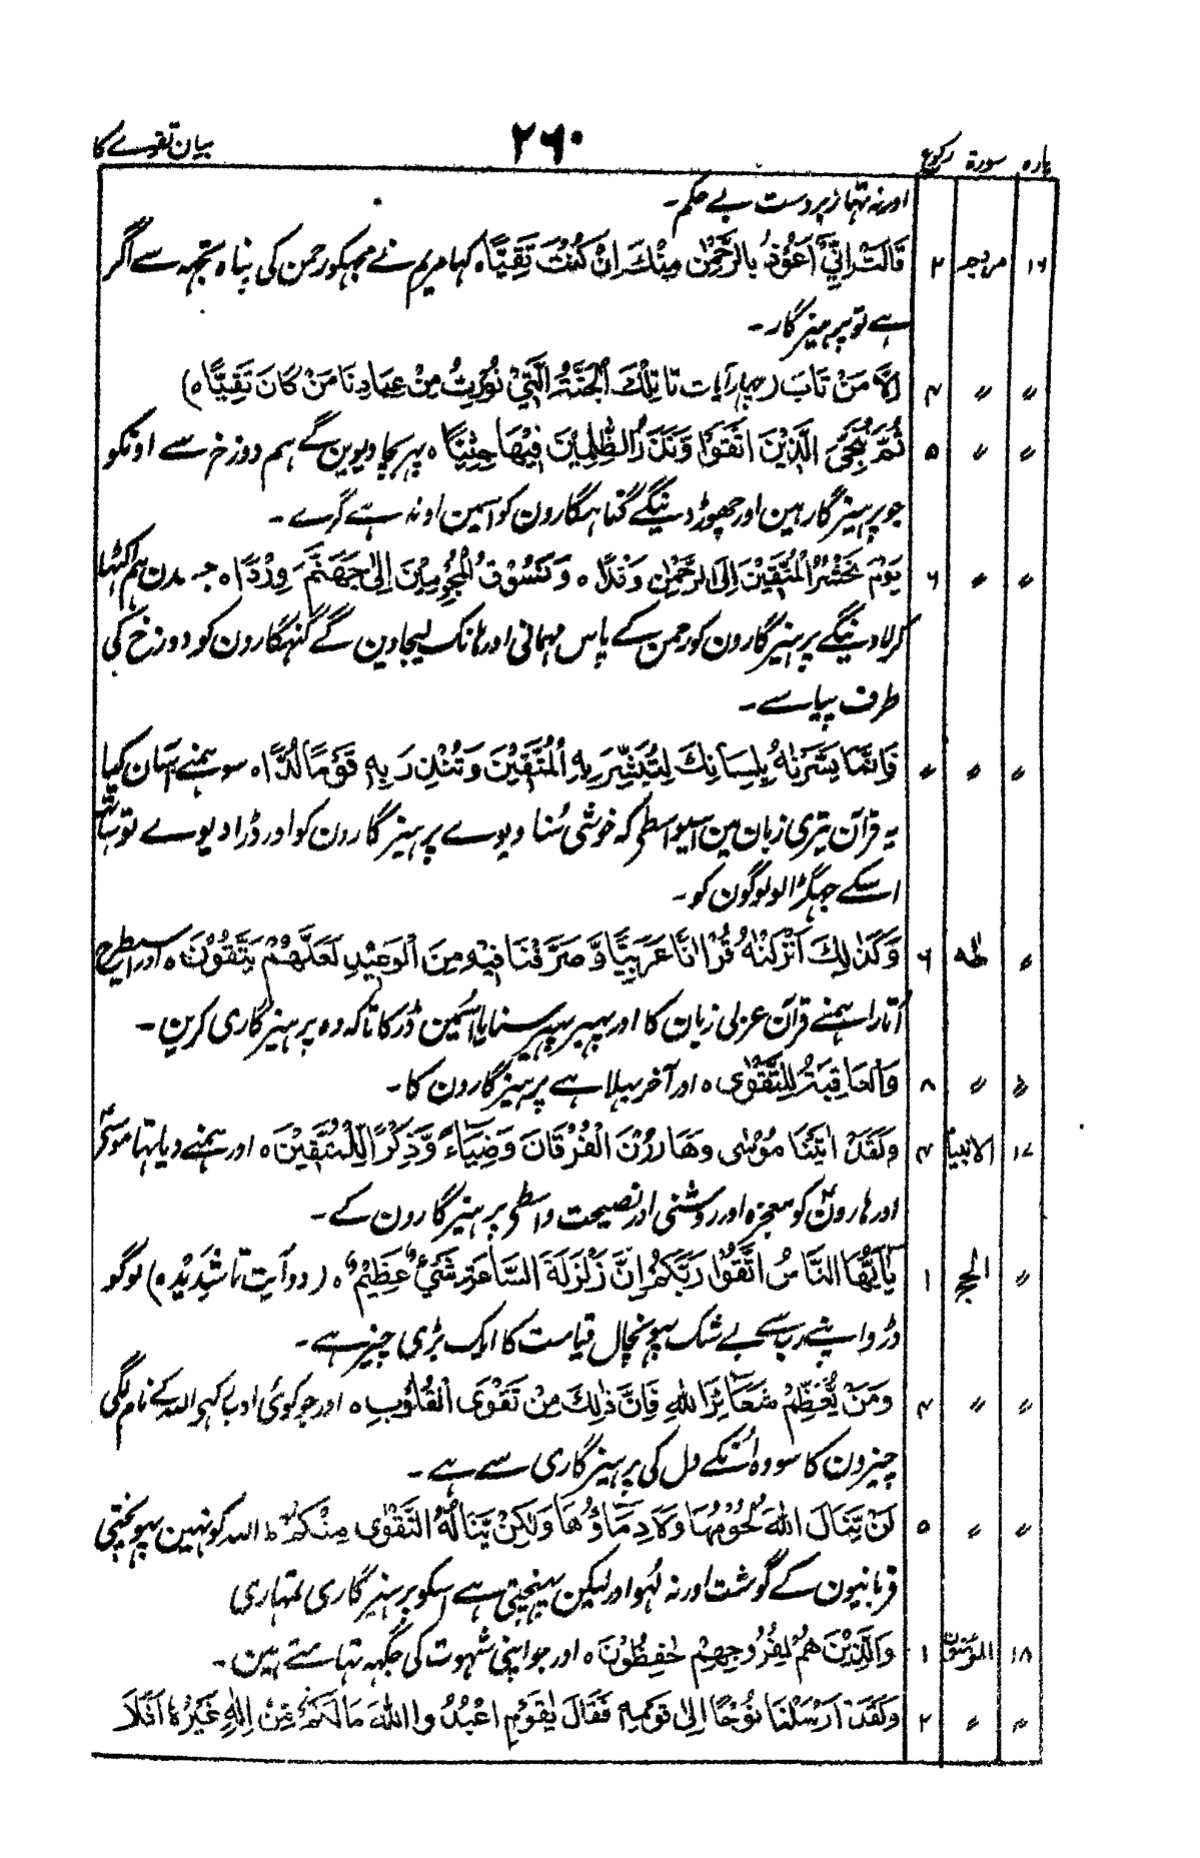 پارہ سورۃ رکوع ۲۶۰ بیان تقوے کا
اور نہ تھا زبردست بے حکم۔
۱۶ مریم ۲ قَالَتْ اِنِّیْ اَعُوْذُ بِالرَّحْمٰنِ مِنْكَ اِنْ كُنْتَ تَقِیًّا ہ کہا مریم نے مجہکو رحمن کی پناہ تجہہ سے اگر
ہے تو پرہیزگار۔
〃 〃 ۴ اِلَّا مَنْ تَابَ (چار آیات تا تِلْكَ الْجَنَّةُ الَّتِیْ نُوْرِثُ مِنْ عِبَادِنَا مَنْ كَانَ تَقِیًّا ہ)
〃 〃 ۵ ثُمَّ نُنَجِّی الَّذِیْنَ اتَّقَوْا وَنَذَرُ الظّٰلِمِیْنَ فِیْهَا جِثِیًّا ہ پہر بچا دیوین گے ہم دوزخ سے اونکو
جو پرہیزگار ہین اور چھوڑ دینگے گناہگارون کو اسمین اوندہے گرے۔
〃 〃 ۶ یَوْمَ نَحْشُرُ الْمُتَّقِیْنَ اِلَی الرَّحْمٰنِ وَفْدًا ہ وَنَسُوْقُ الْمُجْرِمِیْنَ اِلٰی جَهَنَّمَ وِرْدًا ہ جسدن ہم اکٹہا
کر لاوینگے پرہیزگارون کو رحمن کے پاس مہمانی اور ہانک لیجاوین گے گنہگارون کو دوزخ کی
طرف پیاسے۔
〃 〃 〃 فَاِنَّمَا یَسَّرْنٰهُ بِلِسَانِكَ لِتُبَشِّرَ بِهِ الْمُتَّقِیْنَ وَتُنْذِرَ بِهٖ قَوْمًا لُّدًّا ہ سو ہمنے آسان کیا
یہ قرآن تیری زبان مین اسیواسطے کہ خوشی سُنا دیوے پرہیزگارون کو اور ڈرا دیوے تو ساتھ
اسکے جہگڑالو لوگون کو۔
〃 طٰہٰ ۶ وَكَذٰلِكَ اَنْزَلْنٰهُ قُرْاٰنًا عَرَبِیًّا وَّصَرَّفْنَا فِیْهِ مِنَ الْوَعِیْدِ لَعَلَّهُمْ یَتَّقُوْنَ ہ اور اسیطرح
اُتارا ہمنے قرآن عربی زبان کا اور پہیر پہیر سنایا اسمین ڈر کا تاکہ وہ پرہیزگاری کرین۔
〃 〃 ۸ وَالْعَاقِبَةُ لِلتَّقْوٰی ہ اور آخر بہلا ہے پرہیزگارون کا۔
۱۷ الانبیآ ۴ وَلَقَدْ اٰتَیْنَا مُوْسٰی وَهَارُوْنَ الْفُرْقَانَ وَضِیَآءً وَّذِكْرًا لِّلْمُتَّقِیْنَ ہ اور ہمنے دیا تہا موسیٰ
اور ہارون کو معجزہ اور روشنی اور نصیحت واسطے پرہیزگارون کے۔
〃 الحج ۱ یٰاَیُّهَا النَّاسُ اتَّقُوْا رَبَّكُمْ اِنَّ زَلْزَلَةَ السَّاعَةِ شَیْءٌ عَظِیْمٌ ہ (دو آیت تا شَدِیْدٌ ہ) لوگو
ڈرو اپنے رب سے بے شک بہونچال قیامت کا ایک بڑی چیز ہے۔
〃 〃 ۴ وَمَنْ یُّعَظِّمْ شَعَآئِرَ اللّٰهِ فَاِنَّ ذٰلِكَ مِنْ تَقْوَی الْقُلُوْبِ ہ اور جو کوئی ادب رکہے اللہ کے نام لگی
چیزون کا سو وہ اُنکے دل کی پرہیزگاری سے ہے۔
〃 〃 ۵ لَنْ یَّنَالَ اللّٰهَ لُحُوْمُهَا وَلَا دِمَآؤُهَا وَلٰكِنْ یَّنَالُهُ التَّقْوٰی مِنْكُمْ ط اللہ کو نہین پہونچتی
قربانیون کے گوشت اور نہ لہو اور لیکن پہنچتی ہے اسکو پرہیزگاری تمہاری
۱۸ المؤمنون ۱ وَالَّذِیْنَ هُمْ لِفُرُوْجِهِمْ حٰفِظُوْنَ ہ اور جو اپنی شہوت کی جگہہ تہامتے ہین۔
〃 〃 ۲ وَلَقَدْ اَرْسَلْنَا نُوْحًا اِلٰی قَوْمِهٖ فَقَالَ یٰقَوْمِ اعْبُدُوا اللّٰهَ مَا لَكُمْ مِّنْ اِلٰهٍ غَیْرُهٗ اَفَلَا